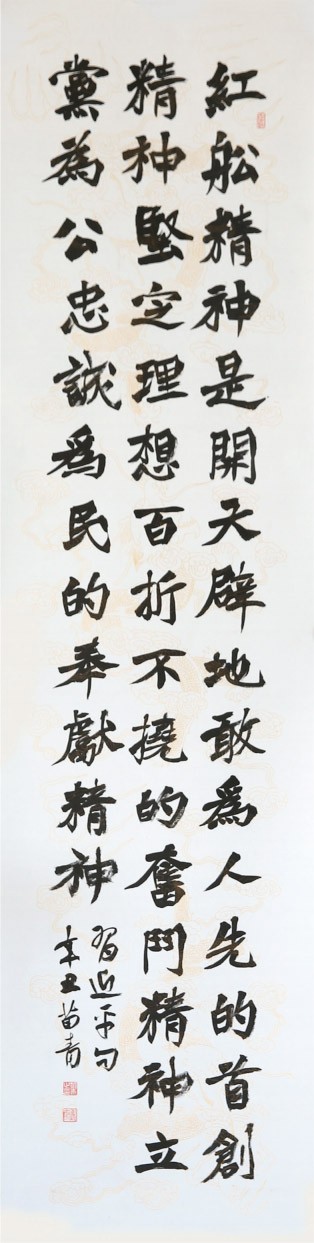 紅船精神是開天辟地敢為人先的首創
精神堅定理想百折不撓的奮鬥精神立
黨為公忠誠為民的奉獻精神
習近平句
辛丑苗青